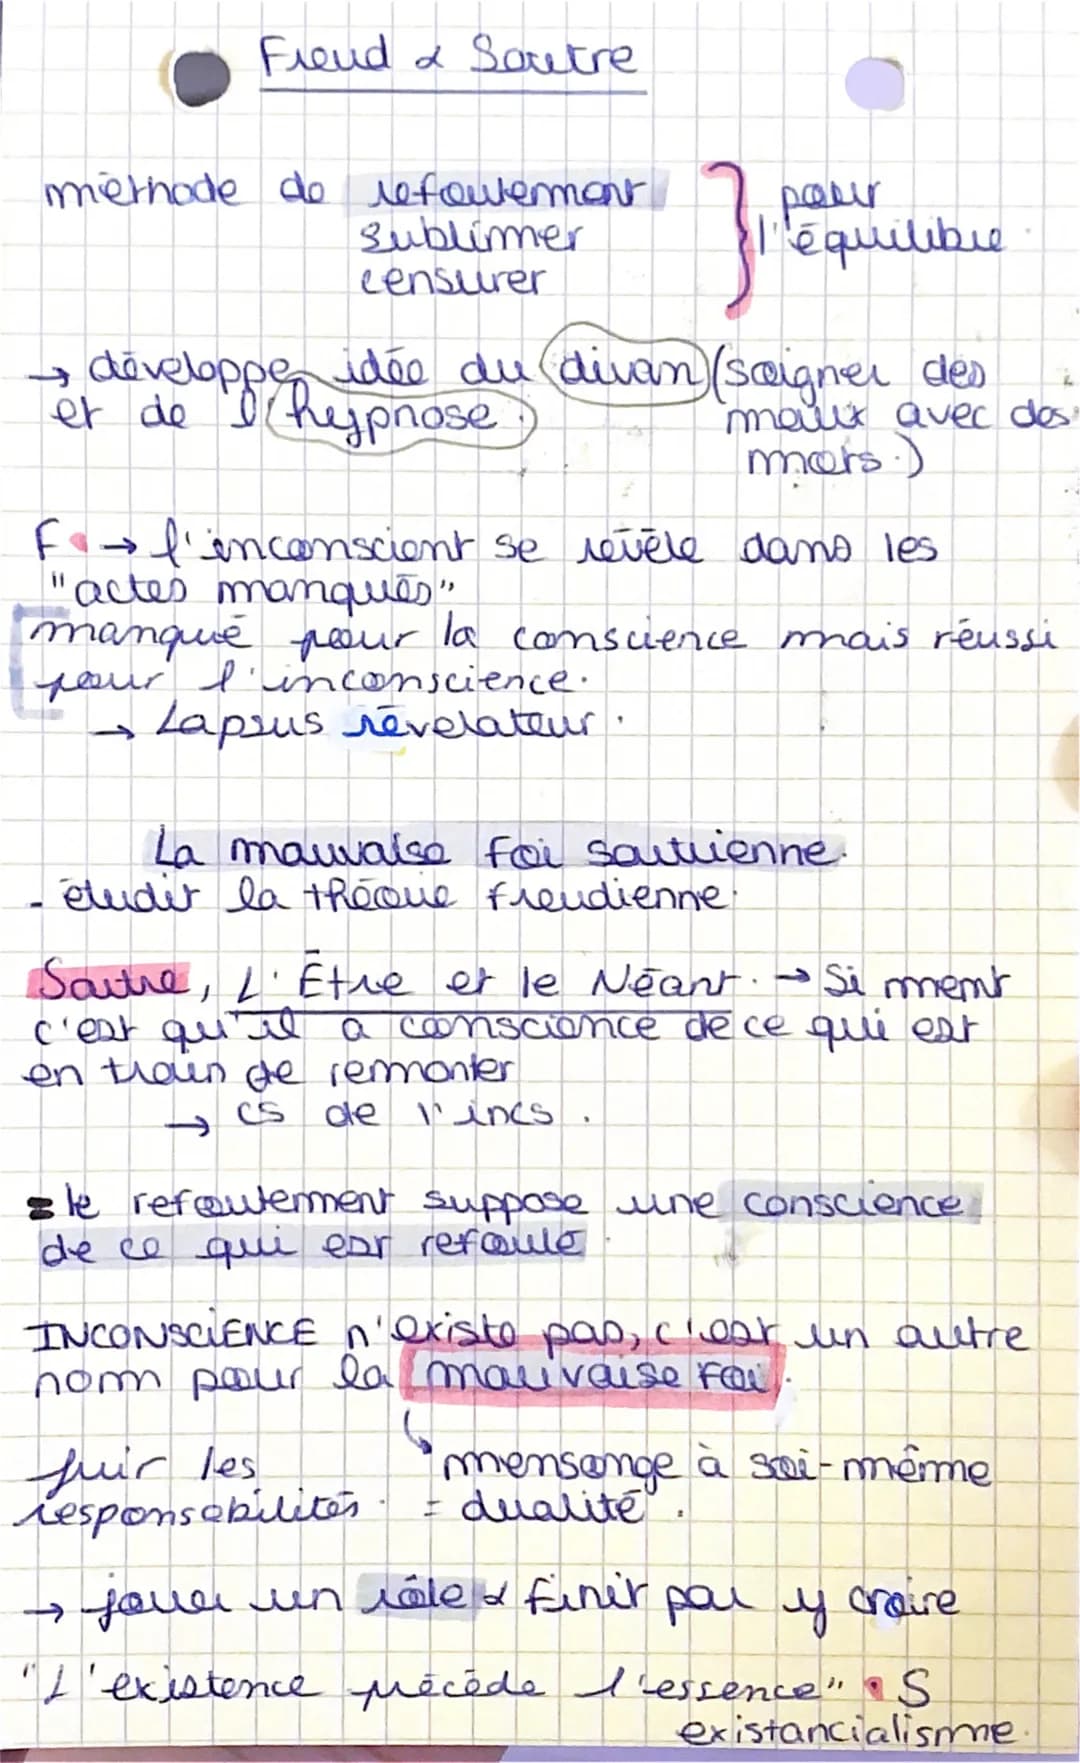 Freud & Sartre
méthode de refoulement
sublimer
censurer
pour
l'équilibre
→ développe idée du divan (soigner des
et de l'hypnose.
maux avec des
mots.)
F. → l'inconscient se révèle dans les
"actes manqués"
manqué pour la conscience mais réussi
pour l'inconscience.
→ Lapsus révélateur.
La mauvaise foi sartrienne.
- étudir la théorie freudienne.
Sartre, L'Être et le Néant. → Si ment
c'est qu'il a conscience de ce qui est
en train de remonter
→ cs de l'incs.
= le refoulement suppose une conscience
de ce qui est refoulé.
INCONSCIENCE n'existe pas, c'est un autre
nom pour la mauvaise foi.
fuir les
responsabilités.
mensonge à soi-même
= dualité.
→ jouer un rôle & finir par y croire
"L'existence précède l'essence" • S
existancialisme.